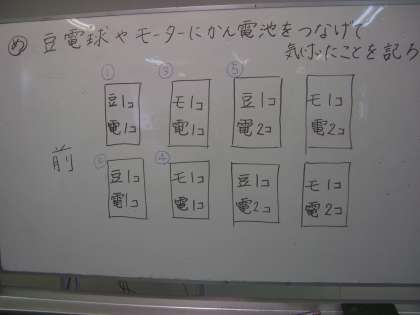 め 豆電球やモーターにかん電池をつなげて
気付いたことを記ろ
① ③ ⑤
豆1コ モ1コ 豆1コ モ1コ
電1コ 電1コ 電2コ 電2コ
前
② ④
豆1コ モ1コ 豆1コ モ1コ
電1コ 電1コ 電2コ 電2コ